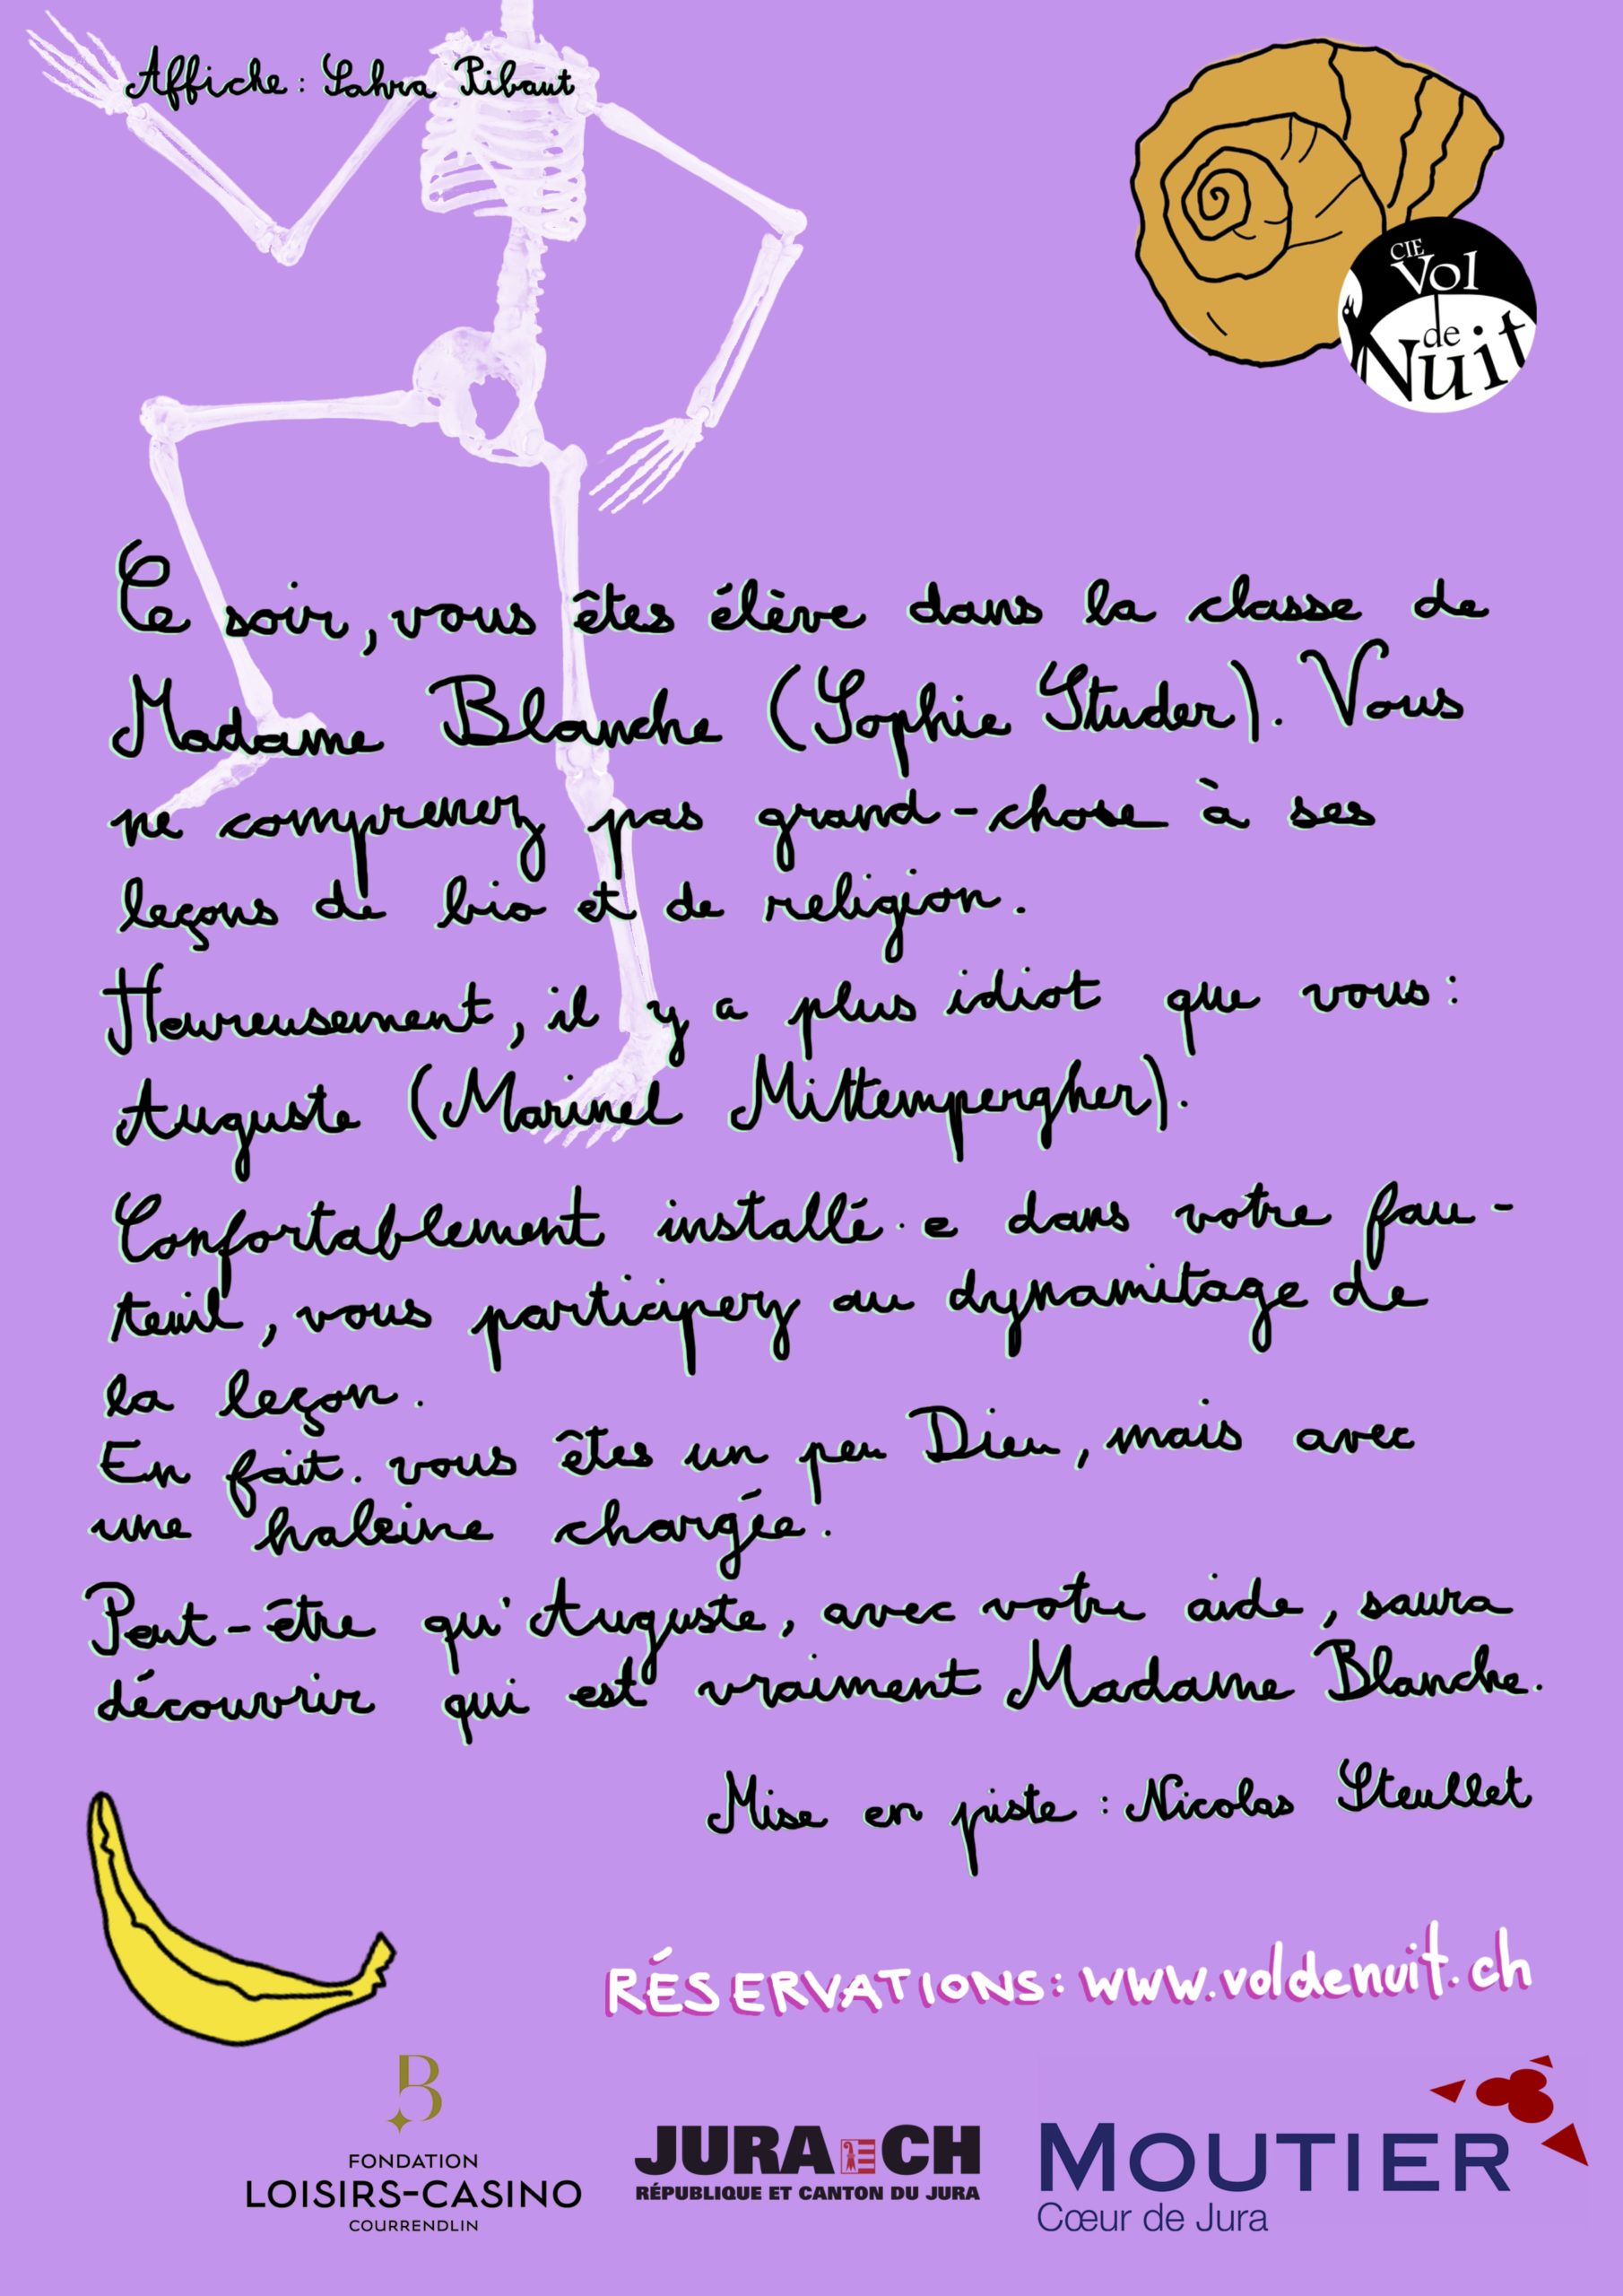 Affiche : Sahra Ribaut
CIE
Vol
de
Nuit
Ce soir, vous êtes élève dans la classe de
Madame Blanche (Sophie Studer). Vous
ne comprenez pas grand-chose à ses
leçons de bio et de religion.
Heureusement, il y a plus idiot que vous :
Auguste (Marinel Mittempergher).
Confortablement installé·e dans votre fau-
teuil, vous participez au dynamitage de
la leçon.
En fait. vous êtes un peu Dieu, mais avec
une haleine chargée.
Peut-être qu'Auguste, avec votre aide, saura
découvrir qui est vraiment Madame Blanche.
Mise en piste : Nicolas Steullet
RÉSERVATIONS: www.voldenuit.ch
B
FONDATION
LOISIRS-CASINO
COURRENDLIN
JURA CH
RÉPUBLIQUE ET CANTON DU JURA
MOUTIER
Cœur de Jura